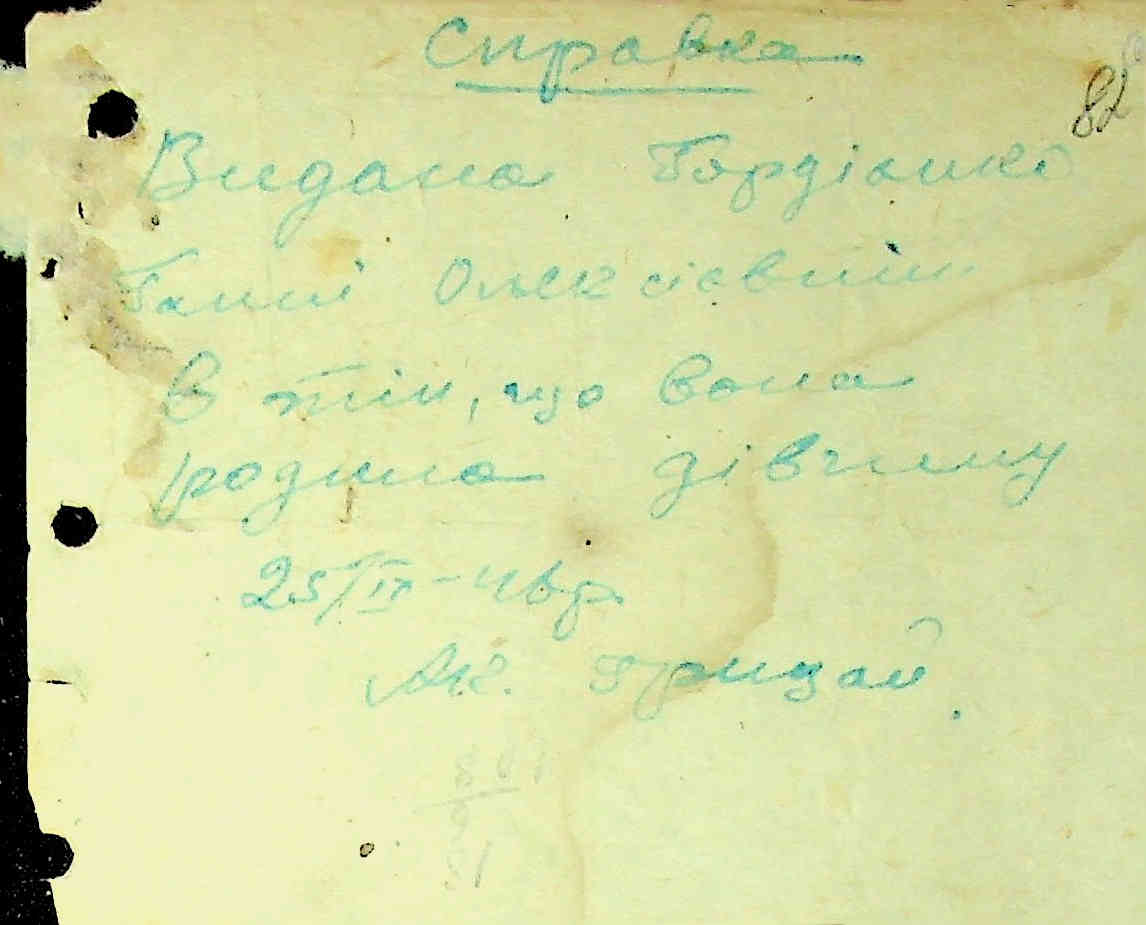 Справка
82
Видана Гордієнко
Ганні Олексіевні
в тім, що вона
родила дівчину
25/IX-42р
Ак. Грицай.